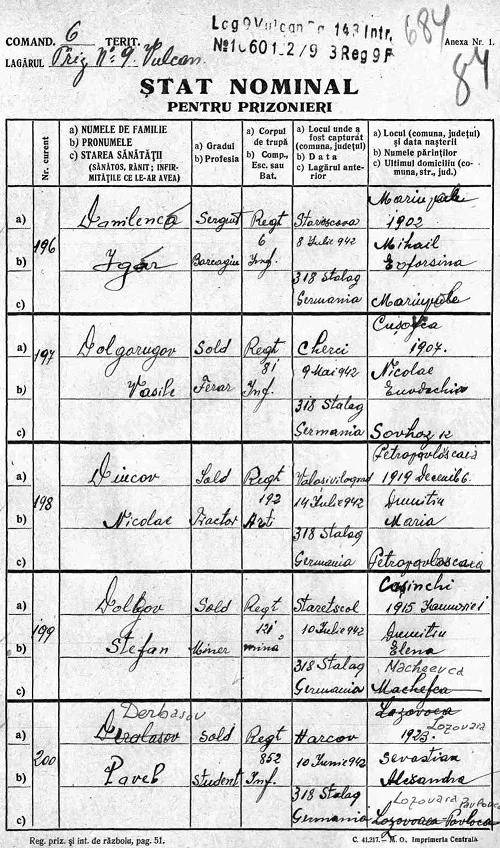 COMAND. 6 TERIT.
LAGĂRUL Priz No 9. Vulcan
Lag 9 Vulcan
3 Reg 9 P
684
Anexa Nr. 1.
84
ȘTAT NOMINAL
PENTRU PRIZONIERI
Nr. curent
a) NUMELE DE FAMILIE
b) PRONUMELE
c) STAREA SĂNĂTĂȚII
(SĂNĂTOS, RĂNIT; INFIR-
MITĂȚILE CE LE-AR AVEA)
a) Gradul
b) Profesia
a) Corpul
de trupă
b) Comp.,
Esc. sau
Bat.
a) Locul unde a
fost capturat
(comuna, județul)
b) Data
c) Lagărul ante-
rior
a) Locul (comuna, județul)
și data nașterii
b) Numele părinților
c) Ultimul domiciliu (co-
muna, str., jud.)
196
a) Danilenco Sergent Regt
1902
6 8 Iulie 942 Mihail
b) Igor Inf. Eoforsina
318 Stalag
c) Germania
197
a) Dolgorugov Sold Regt Cherci 1907.
81 9 Mai 942 Nicolae
b) Vasile Ferar Inf. Evodochia
318 Stalag
c) Germania Sovhoz 12
198
Petropovloscaia
a) Diucov Sold Regt 1919 Decemb 6.
192 14 Iulie 942 Dumitru
b) Nicolae Tractor Art Maria
318 Stalag
c) Germania Petropovloscaia
199
Cosinchi
a) Dolbov Sold Regt Staretscol 1915
121 10 Iulie 942 Dumitru
b) Stefan Miner mina Elena
318 Stalag Macheevca
c) Germania Machefca
200
Derbasov Lozovoea
a) Sold Regt Harcov 1923. Lozovara
852 10 Iunie 942 Sevastian
b) Pavel Student Inf. Alexandra
318 Stalag Lozovara Pavlovca
c) Germania Lozovoea Pavloca
Reg. priz. și int. de războiu, pag. 51.
C. 41.217. – M. O., Imprimeria Centrală